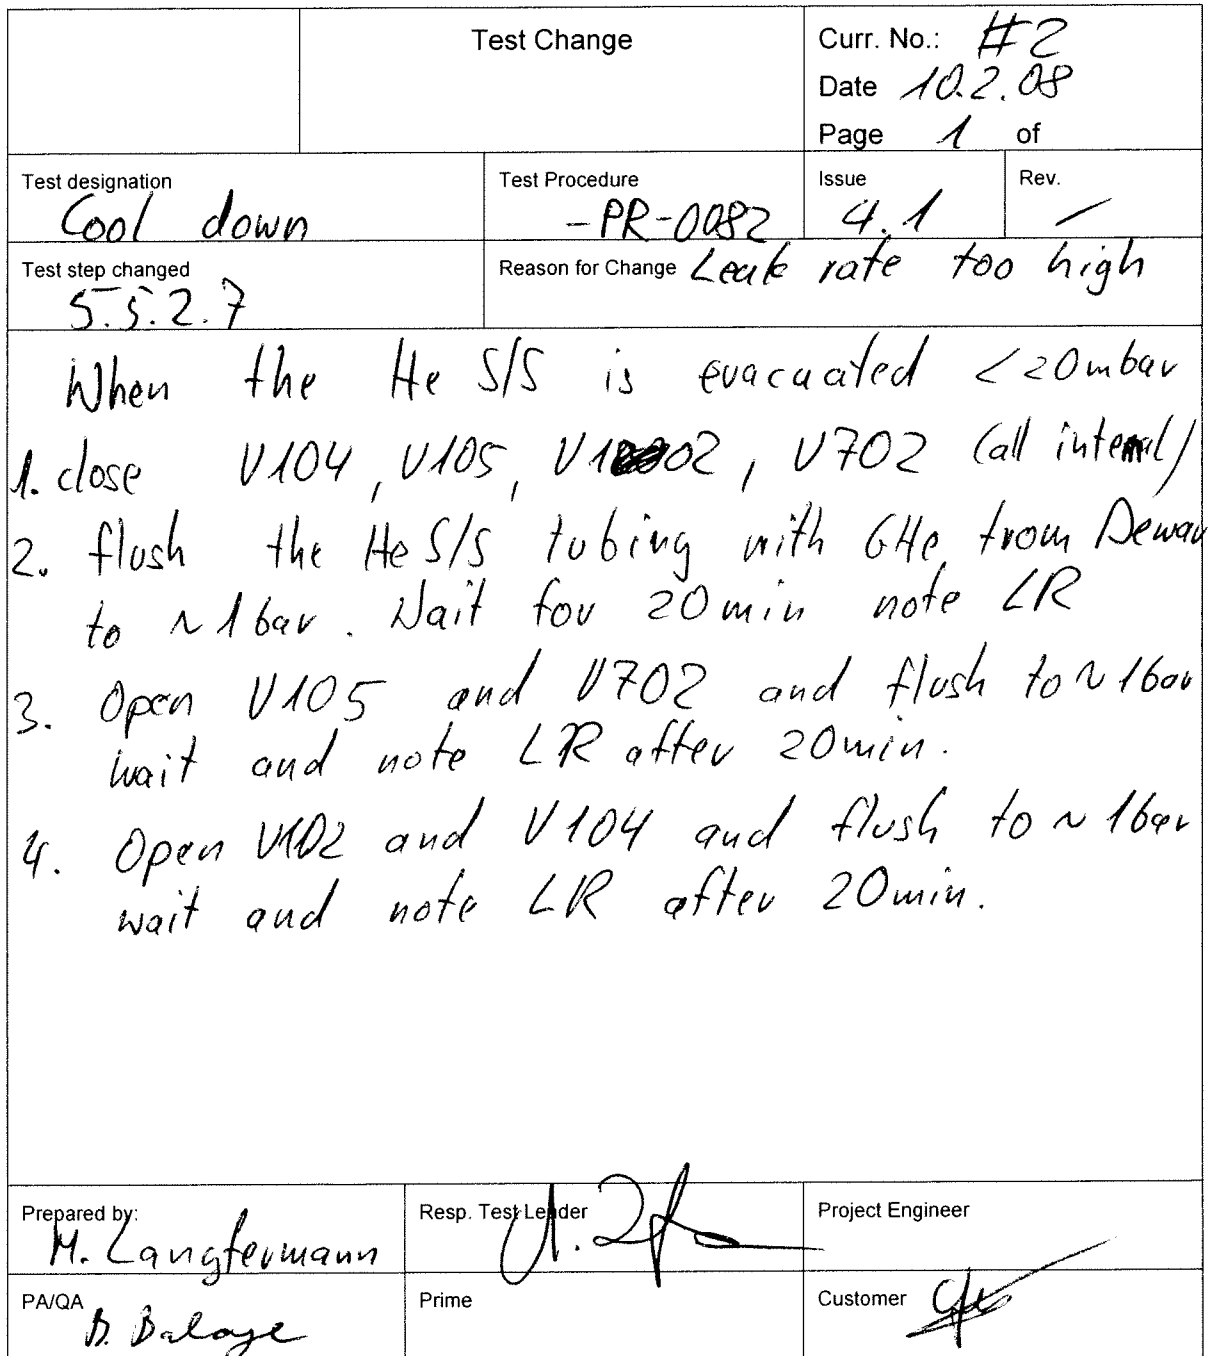 Test Change
Curr. No.: #2
Date 10.2.08
Page 1 of
Test designation
Cool down
Test Procedure
-PR-0082
Issue
4.1
Rev.
/
Test step changed
5.5.2.7
Reason for Change Leak rate too high
When the He S/S is evacuated <20mbar
1. close V104, V105, V102, V702 (all internal)
2. flush the He S/S tubing with GHe from Dewar
to ~1bar. Wait for 20min note LR
3. Open V105 and V702 and flush to ~1bar
wait and note LR after 20min.
4. Open V102 and V104 and flush to ~1bar
wait and note LR after 20min.
Prepared by:
M. Langfermann
Resp. Test Leader
Project Engineer
PA/QA
Prime
Customer